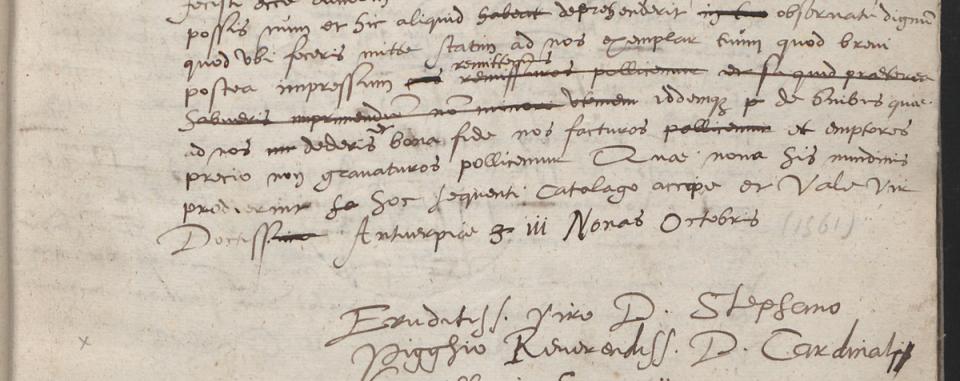 possis num et hic aliquid habeat deprehenderit in eo observatu dignum
quod ubi feceris mitte statim ad nos exemplar tuum quod brevi
remittemus
postea impressum remissuros pollicemur et si quid praeterea
habueris imprimendum non minore utemur iidemque de omnibus quae
ad nos dederis bona fide nos facturos pollicemur et emptores
precio non gravaturos pollicemur Quae nova his nundinis
prodierint hoc sequenti Catalago accipe et Vale Vir
Doctiss. Antverpiae 3 iii Nonas Octobris (1561)
Eruditiss. viro D. Stephano
Pigghio Reverendiss. D. Cardinalis